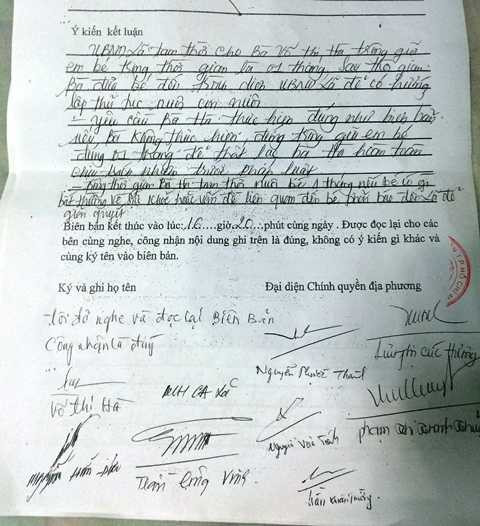 Ý kiến kết luận
UBND xã tạm thời cho Bà Võ Thị Hà trông giữ
em bé trong thời gian là 01 tháng, sau thời gian
Bà đưa bé đến trình diện UBND xã để có hướng
lập thủ tục nuôi con nuôi
- yêu cầu Bà Hà thực hiện đúng như biên bản
nếu Bà không thực hiện đúng trông giữ em bé
đúng 01 tháng để thất lạc bà Hà hoàn toàn
chịu trách nhiệm trước pháp luật
- trong thời gian Bà Hà tạm thời nuôi bé 1 tháng nếu bé có gì
bất thường về sức khỏe hoặc vấn đề liên quan đến bé phải báo đến xã để
giải quyết
Biên bản kết thúc vào lúc: 16 giờ 20 phút cùng ngày. Được đọc lại cho các
bên cùng nghe, công nhận nội dung ghi trên là đúng, không có ý kiến gì khác và
cùng ký tên vào biên bản.
Ký và ghi họ tên
Đại diện Chính quyền địa phương
Tôi đã nghe và đọc lại Biên Bản
Công nhận là đúng
Nguyễn Phước
Võ Thị Hà
CA xã
Nguyễn Văn
Trần Công Vinh
Trần